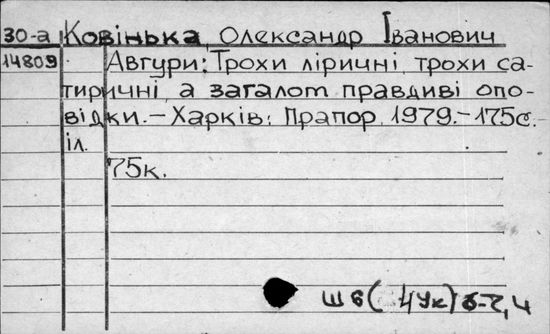 30-а Ковінька, Олександр Іванович
14809 Авгури: Трохи ліричні, трохи са-
тиричні, а загалом правдиві опо-
відки. – Харків: Прапор, 1979. – 175с. –
іл.
75к.
Ш6( 4Ук)6-7,4